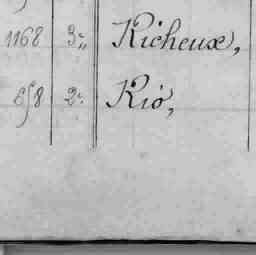 1168 3. Richeux,
658 2. Rio,